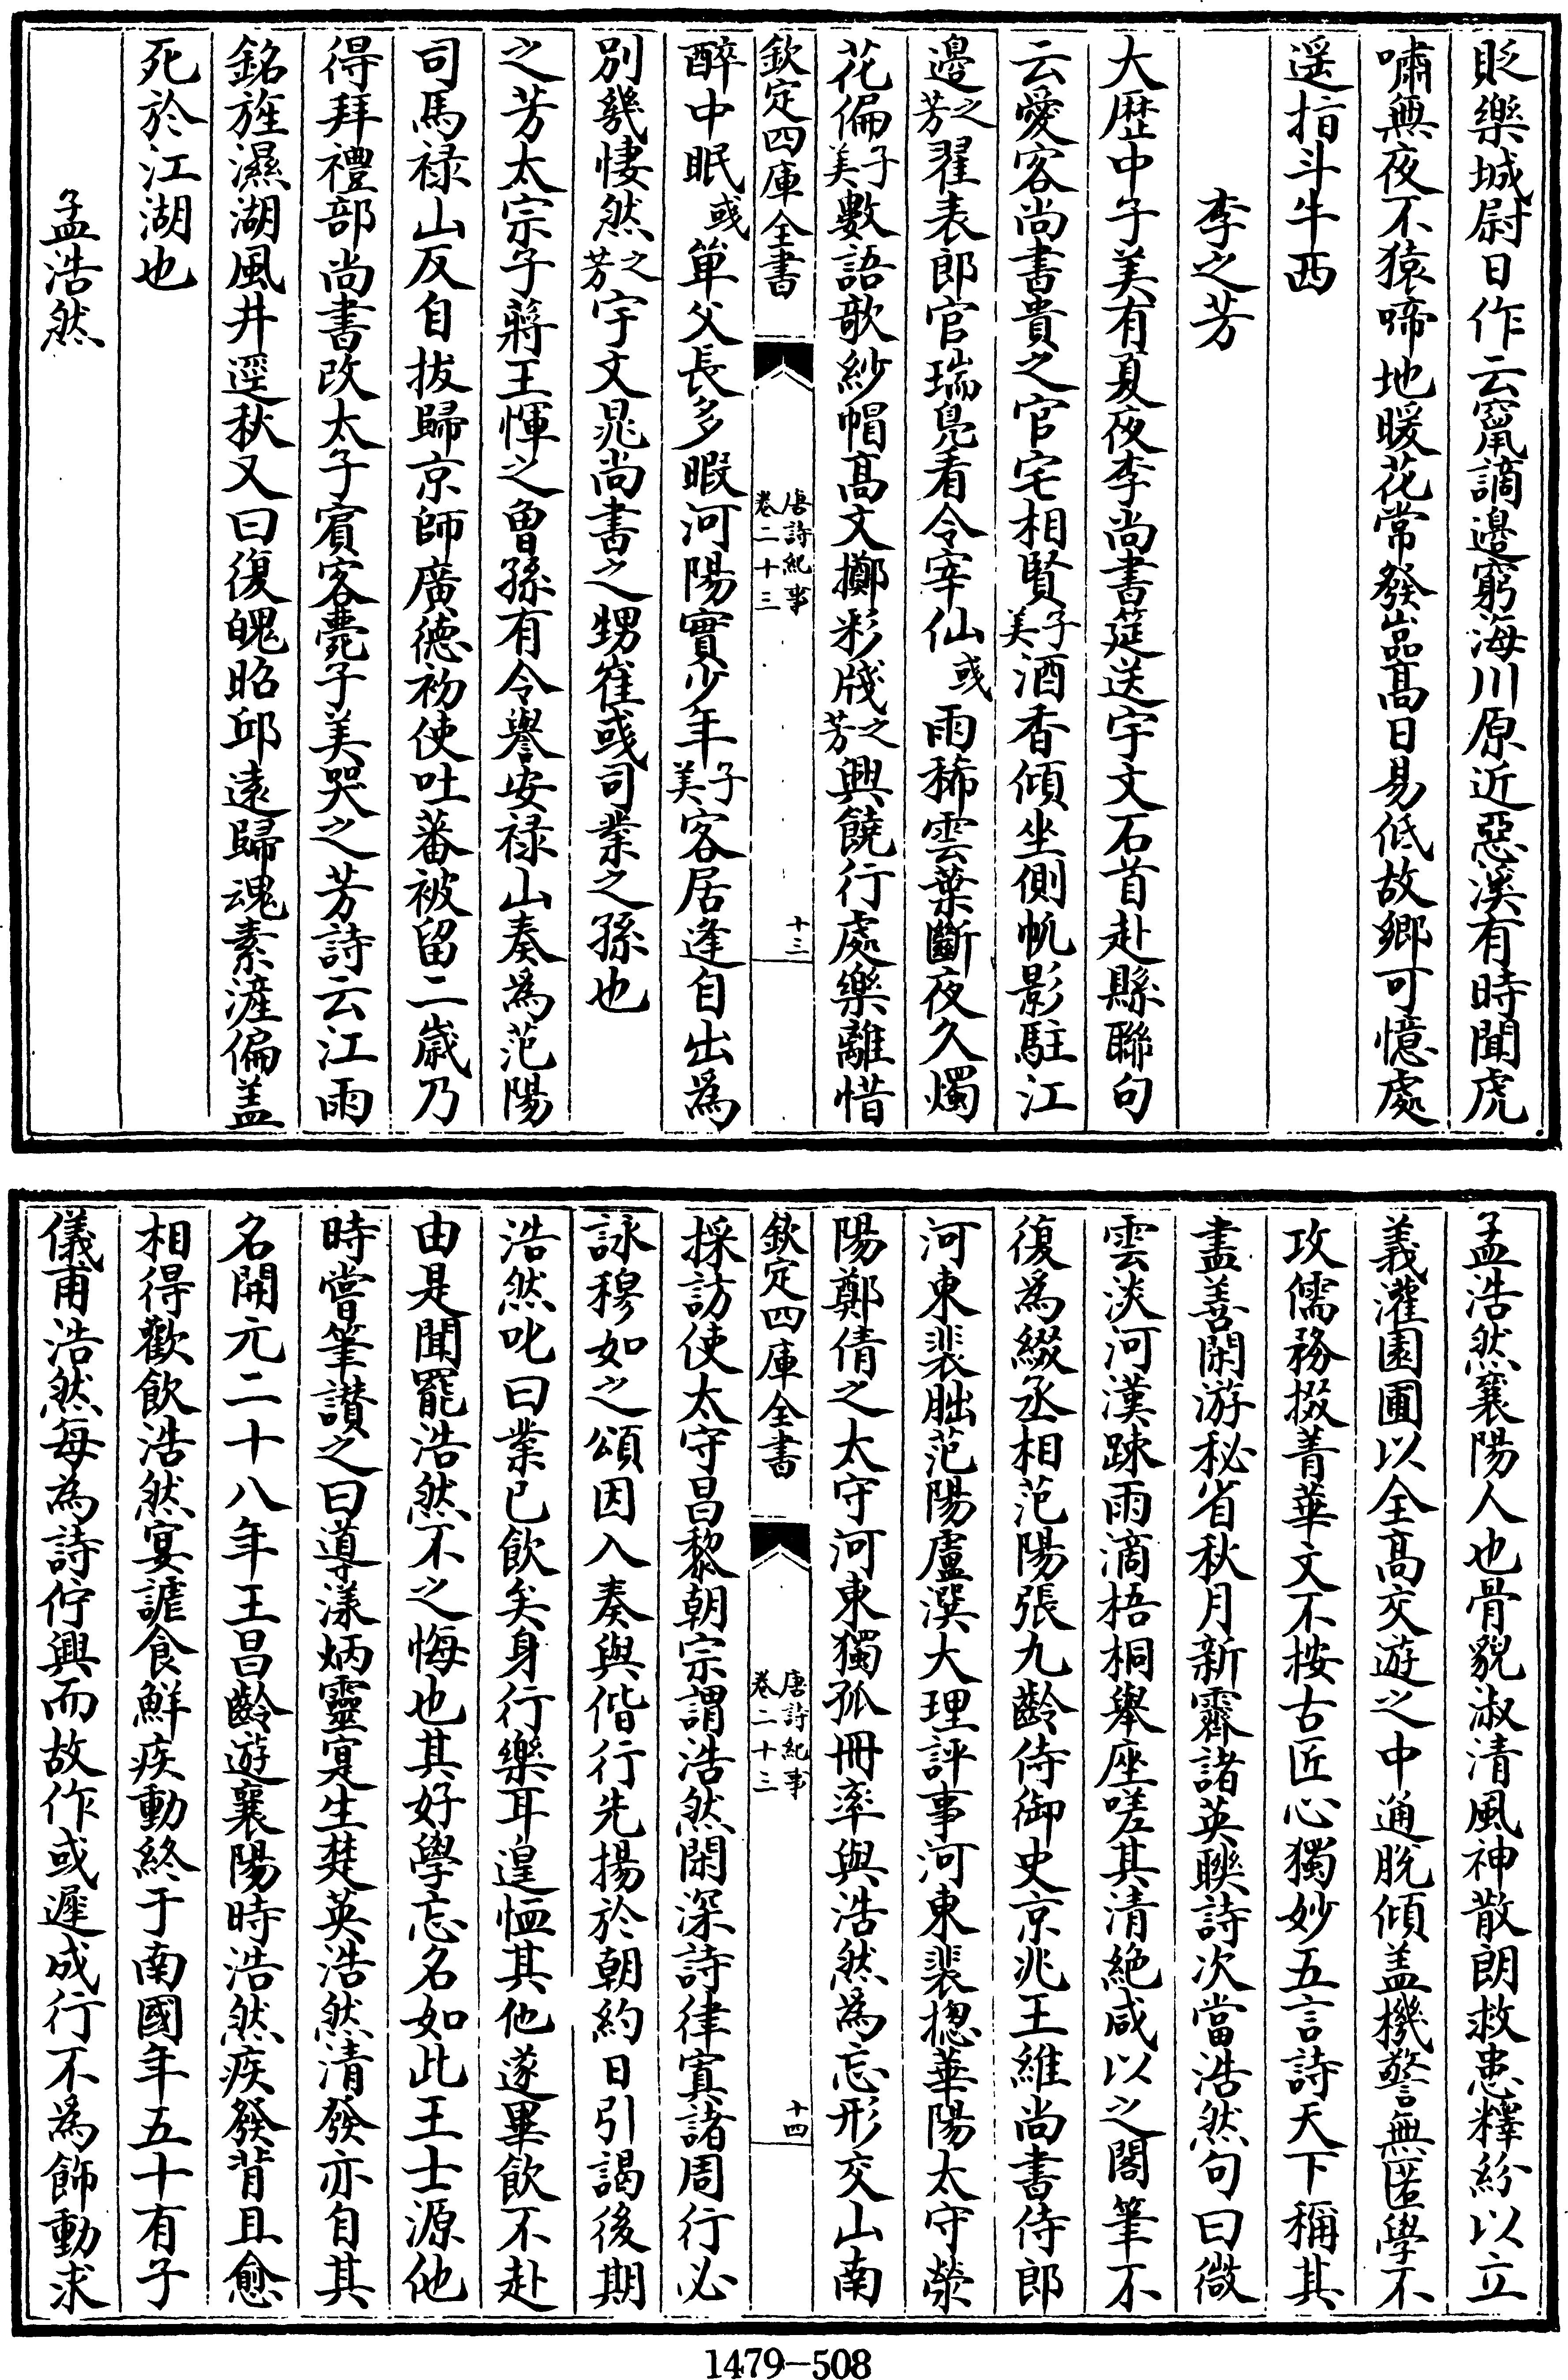 貶樂城尉日作云竄謫邉窮海川原近惡溪有時聞虎
嘯無夜不猿啼地暖花常發喦髙日易低故鄉可憶處
遥指斗牛西
李之芳
大厯中子美有夏夜李尚書筵送宇文石首赴縣聯句
云愛客尚書貴之官宅相賢子美酒香傾坐側帆影駐江
邊之芳翟表郎官瑞鳬看令宰仙彧雨稀雲葉斷夜久燭
花偏子美數語欹紗帽髙文擲彩牋之芳興饒行處樂離惜
欽定四庫全書
唐詩紀事
卷二十三
十三
醉中眠彧單父長多暇河陽實少年子美客居逢自出為
別幾悽然之芳宇文晁尚書之甥崔彧司業之孫也
之芳太宗子蔣王惲之曽孫有令譽安禄山奏為范陽
司馬禄山反自拔歸京師廣徳初使吐蕃被留二嵗乃
得拜禮部尚書改太子賓客薨子美哭之芳詩云江雨
銘旌濕湖風井逕秋又曰復魄昭邱逺歸魂素滻偏盖
死於江湖也
孟浩然
孟浩然襄陽人也骨貌淑清風神散朗救患釋紛以立
義灌園圃以全髙交遊之中通脱傾盖機警無匿學不
攻儒務掇菁華文不按古匠心獨妙五言詩天下稱其
盡善閑游秘省秋月新霽諸英聨詩次當浩然句曰微
雲淡河漢踈雨滴梧桐舉座嗟其清絶咸以之閣筆不
復為綴丞相范陽張九齡侍御史京兆王維尚書侍郎
河東裴朏范陽盧僎大理評事河東裴摠華陽太守滎
陽鄭倩之太守河東獨孤冊率與浩然為忘形交山南
欽定四庫全書
唐詩紀事
卷二十三
十四
採訪使太守昌黎朝宗謂浩然閑深詩律寘諸周行必
詠穆如之頌因入奏與偕行先揚於朝約日引謁後期
浩然叱曰業已飲矣身行樂耳遑恤其他遂畢飲不赴
由是聞罷浩然不之悔也其好學忘名如此王士源他
時嘗筆讃之曰導漾炳靈寔生楚英浩然清發亦自其
名開元二十八年王昌齡遊襄陽時浩然疾發背且愈
相得歡飲浩然宴謔食鮮疾動終于南國年五十有子
儀甫浩然每為詩佇興而故作或遲成行不為飾動求
1479-508